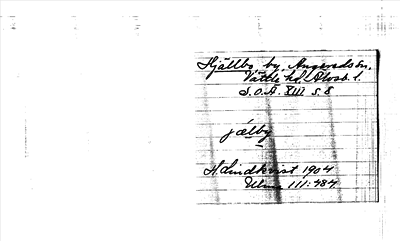 Hjällbo by, Angereds sn,
Vättle hd, Älvsb. l.
S.O.Ä. XIII s. 8
jælby
H. Lindkvist 1904
Ulma 111:484